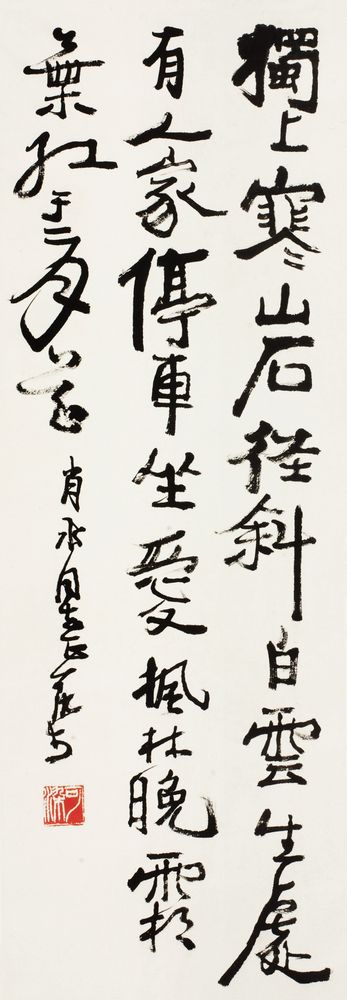 獨上寒山石径斜白雲生處
有人家停車坐愛楓林晚霜
葉红于二月花
肖同志正
可染